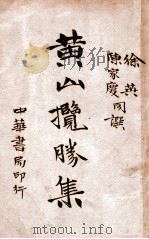 徐英
陳家慶同譔
黃山攬勝集
中華書局印行